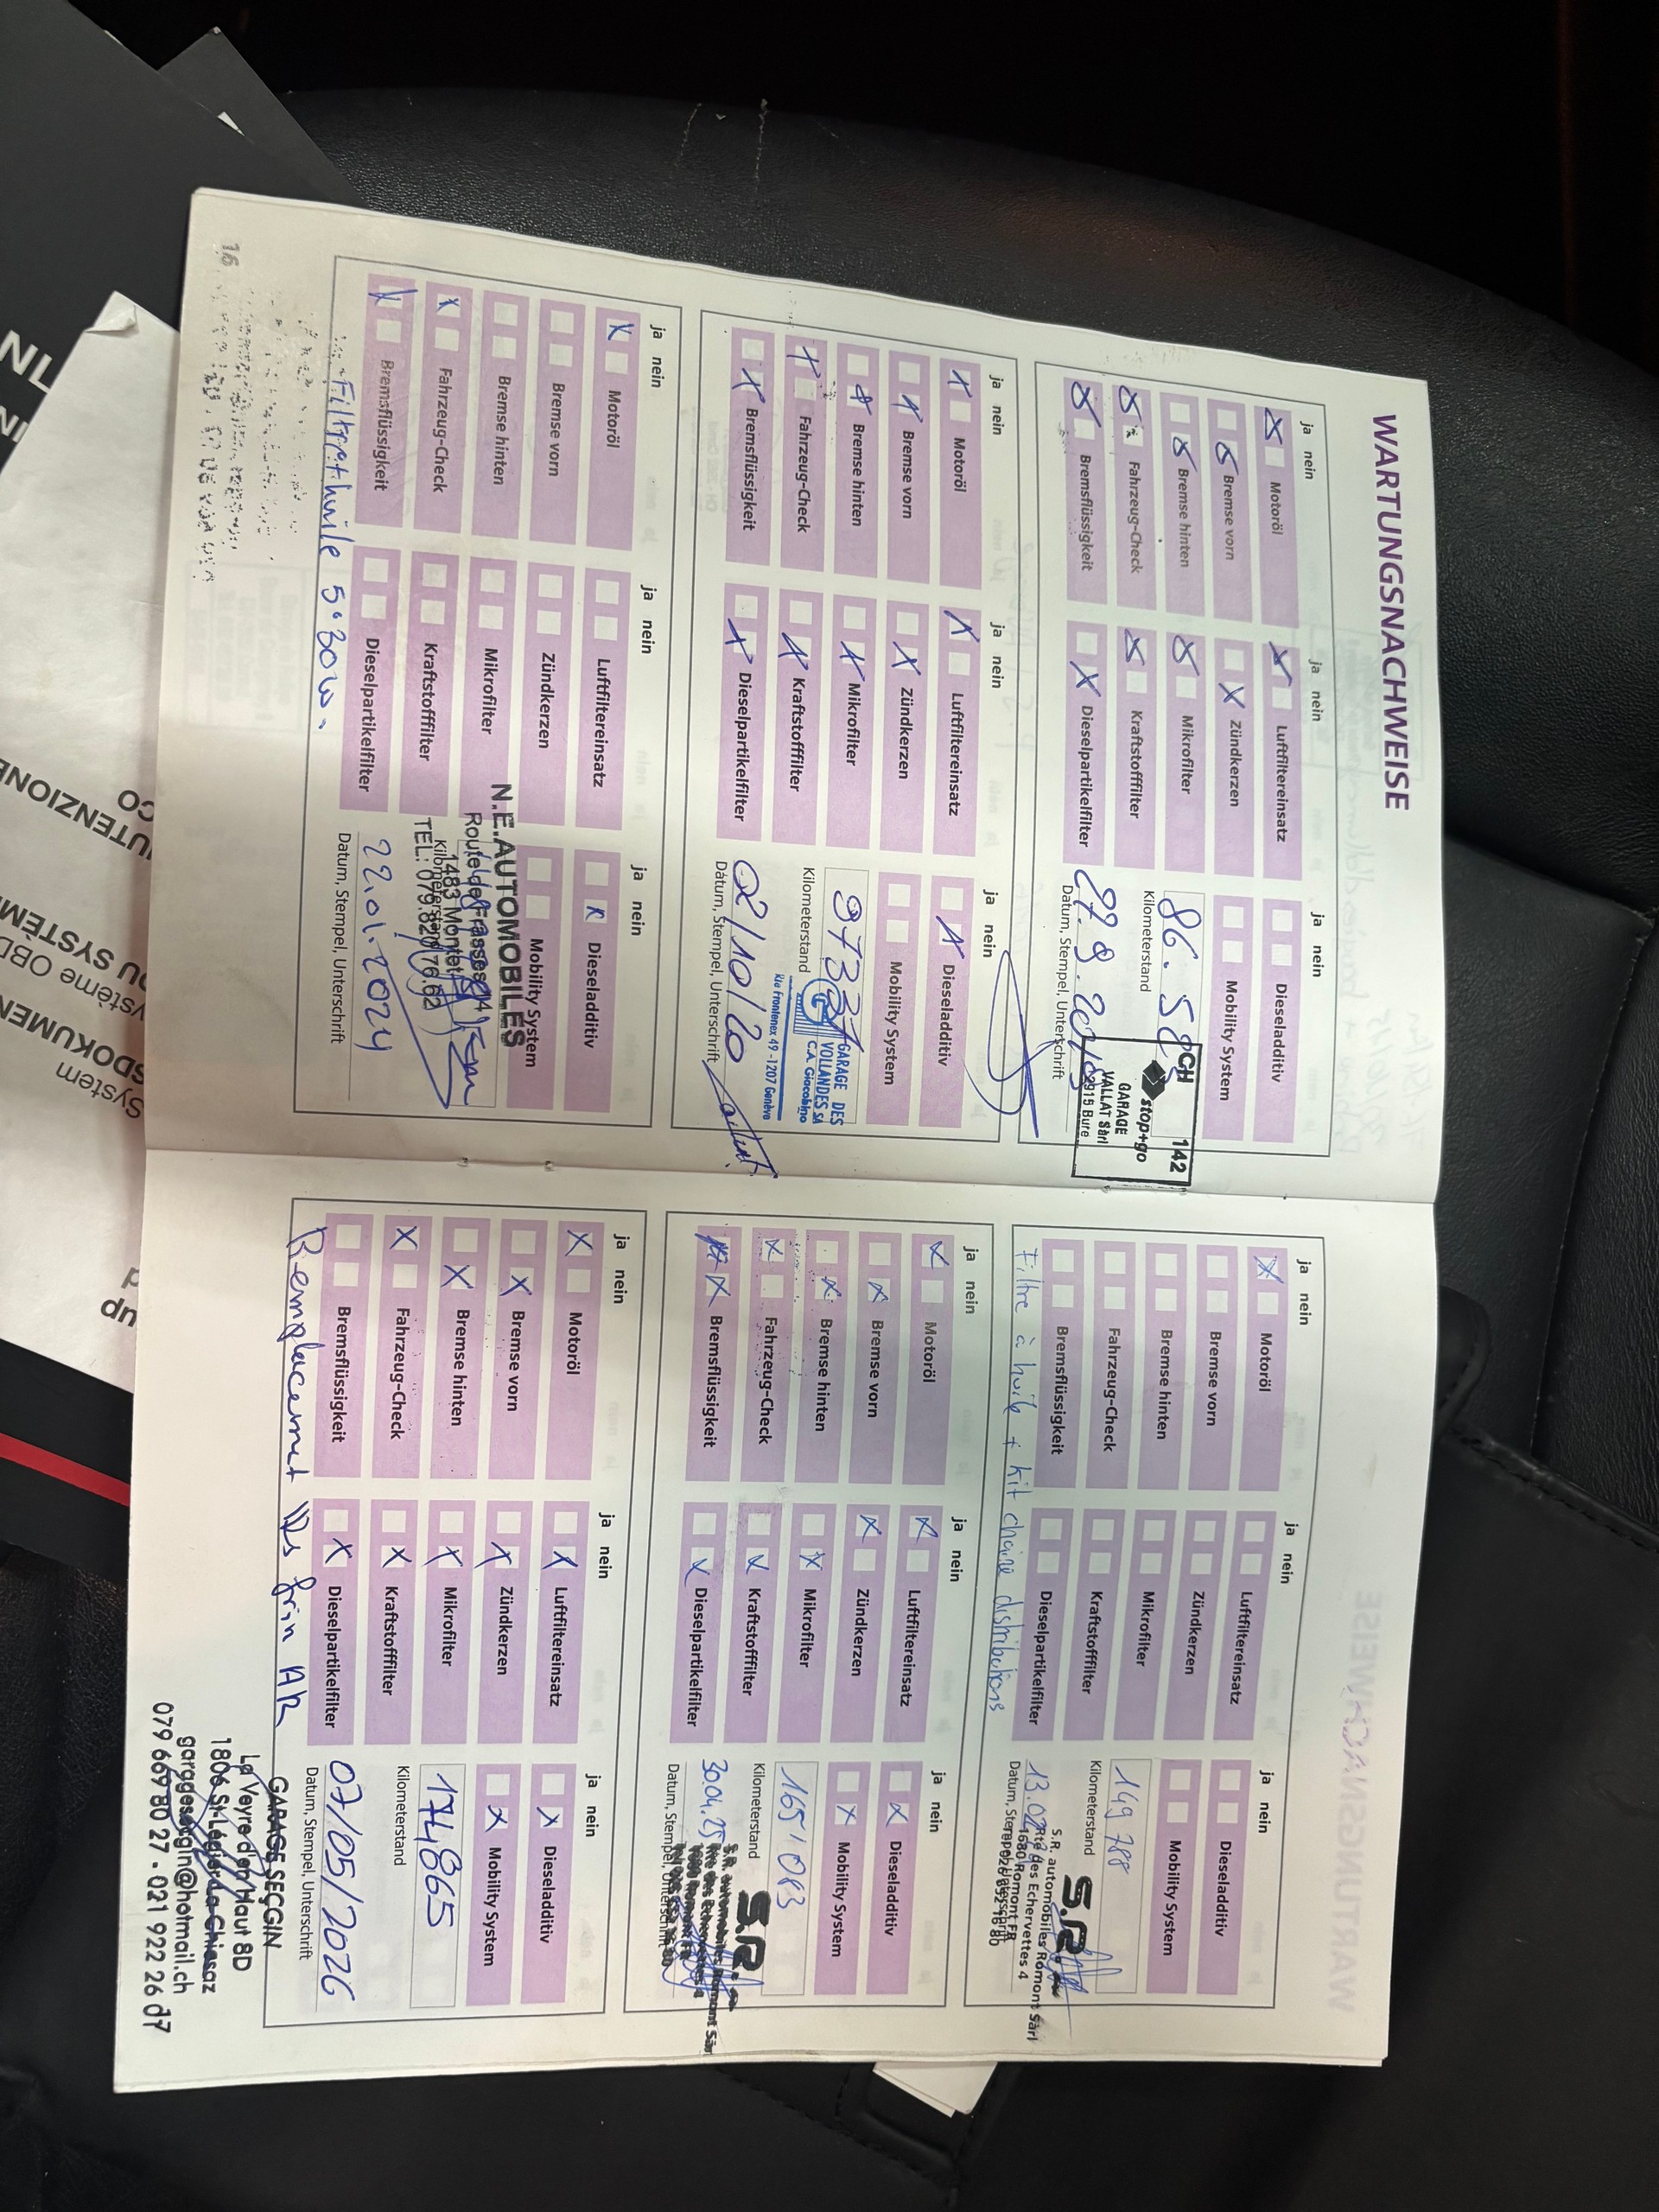 WARTUNGSNACHWEISE
ja nein
ja nein
ja nein
Motoröl
Luftfiltereinsatz
Dieseladditiv
Bremse vorn
Zündkerzen
Mobility System
Bremse hinten
Mikrofilter
86.5
Fahrzeug-Check
Kraftstofffilter
Kilometerstand
Bremsflüssigkeit
Dieselpartikelfilter
Datum, Stempel, Unterschrift
CH 142
stop+go
GARAGE
VALLAT Sàrl
2915 Bure
ja nein
ja nein
ja nein
Motoröl
Luftfiltereinsatz
Dieseladditiv
Bremse vorn
Zündkerzen
Mobility System
Bremse hinten
Mikrofilter
Fahrzeug-Check
Kraftstofffilter
Kilometerstand
Bremsflüssigkeit
Dieselpartikelfilter
02/10/20
Datum, Stempel, Unterschrift
GARAGE DES
VOLLANDES SA
C.A. Giacobino
Rte Frontenex 49 - 1207 Genève
ja nein
ja nein
ja nein
Motoröl
Luftfiltereinsatz
Dieseladditiv
Bremse vorn
Zündkerzen
Mobility System
Bremse hinten
Mikrofilter
Fahrzeug-Check
Kraftstofffilter
Kilometerstand
Bremsflüssigkeit
Dieselpartikelfilter
22.01.2024
Datum, Stempel, Unterschrift
N.E.AUTOMOBILES
1483 Montet
huile 5.30w.
16
ja nein
ja nein
ja nein
Motoröl
Luftfiltereinsatz
Dieseladditiv
Bremse vorn
Zündkerzen
Mobility System
Bremse hinten
Mikrofilter
149 788
Fahrzeug-Check
Kraftstofffilter
Kilometerstand
Bremsflüssigkeit
Dieselpartikelfilter
Filtre à huile + kit chaine distributions
S.R.
S.R. automobiles Romont Sàrl
Rte des Echervettes 4
1680 Romont FR
ja nein
ja nein
ja nein
Motoröl
Luftfiltereinsatz
Dieseladditiv
Bremse vorn
Zündkerzen
Mobility System
Bremse hinten
Mikrofilter
165'083
Fahrzeug-Check
Kraftstofffilter
Kilometerstand
Bremsflüssigkeit
Dieselpartikelfilter
30.04.25
Datum, Stempel, Unterschrift
S.R.
S.R. automobiles Romont Sàrl
Rte des Echervettes 4
1680 Romont FR
ja nein
ja nein
ja nein
Motoröl
Luftfiltereinsatz
Dieseladditiv
Bremse vorn
Zündkerzen
Mobility System
Bremse hinten
Mikrofilter
174865
Fahrzeug-Check
Kraftstofffilter
Kilometerstand
Bremsflüssigkeit
Dieselpartikelfilter
07/05/2026
Datum, Stempel, Unterschrift
Remplacement
frin AR
GARAGE SEÇGIN
La Veyre d'en Haut 8D
1806 St-Légier-La Chiésaz
garagesecgin@hotmail.ch
079 669 80 27 - 021 922 26 d7